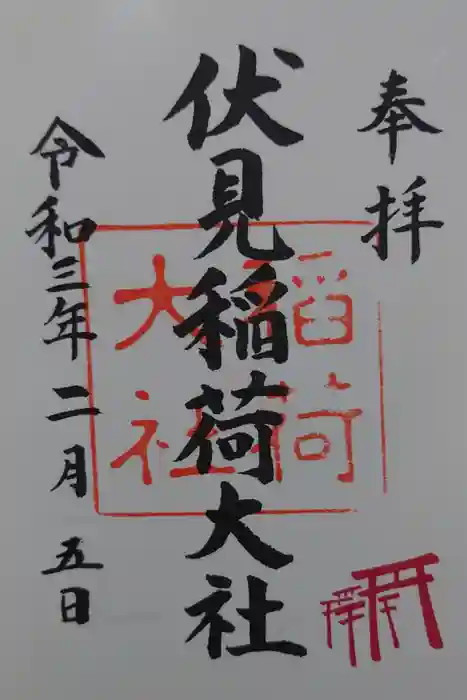 奉拝
伏見稲荷大社
稲荷
大社
令和三年二月五日